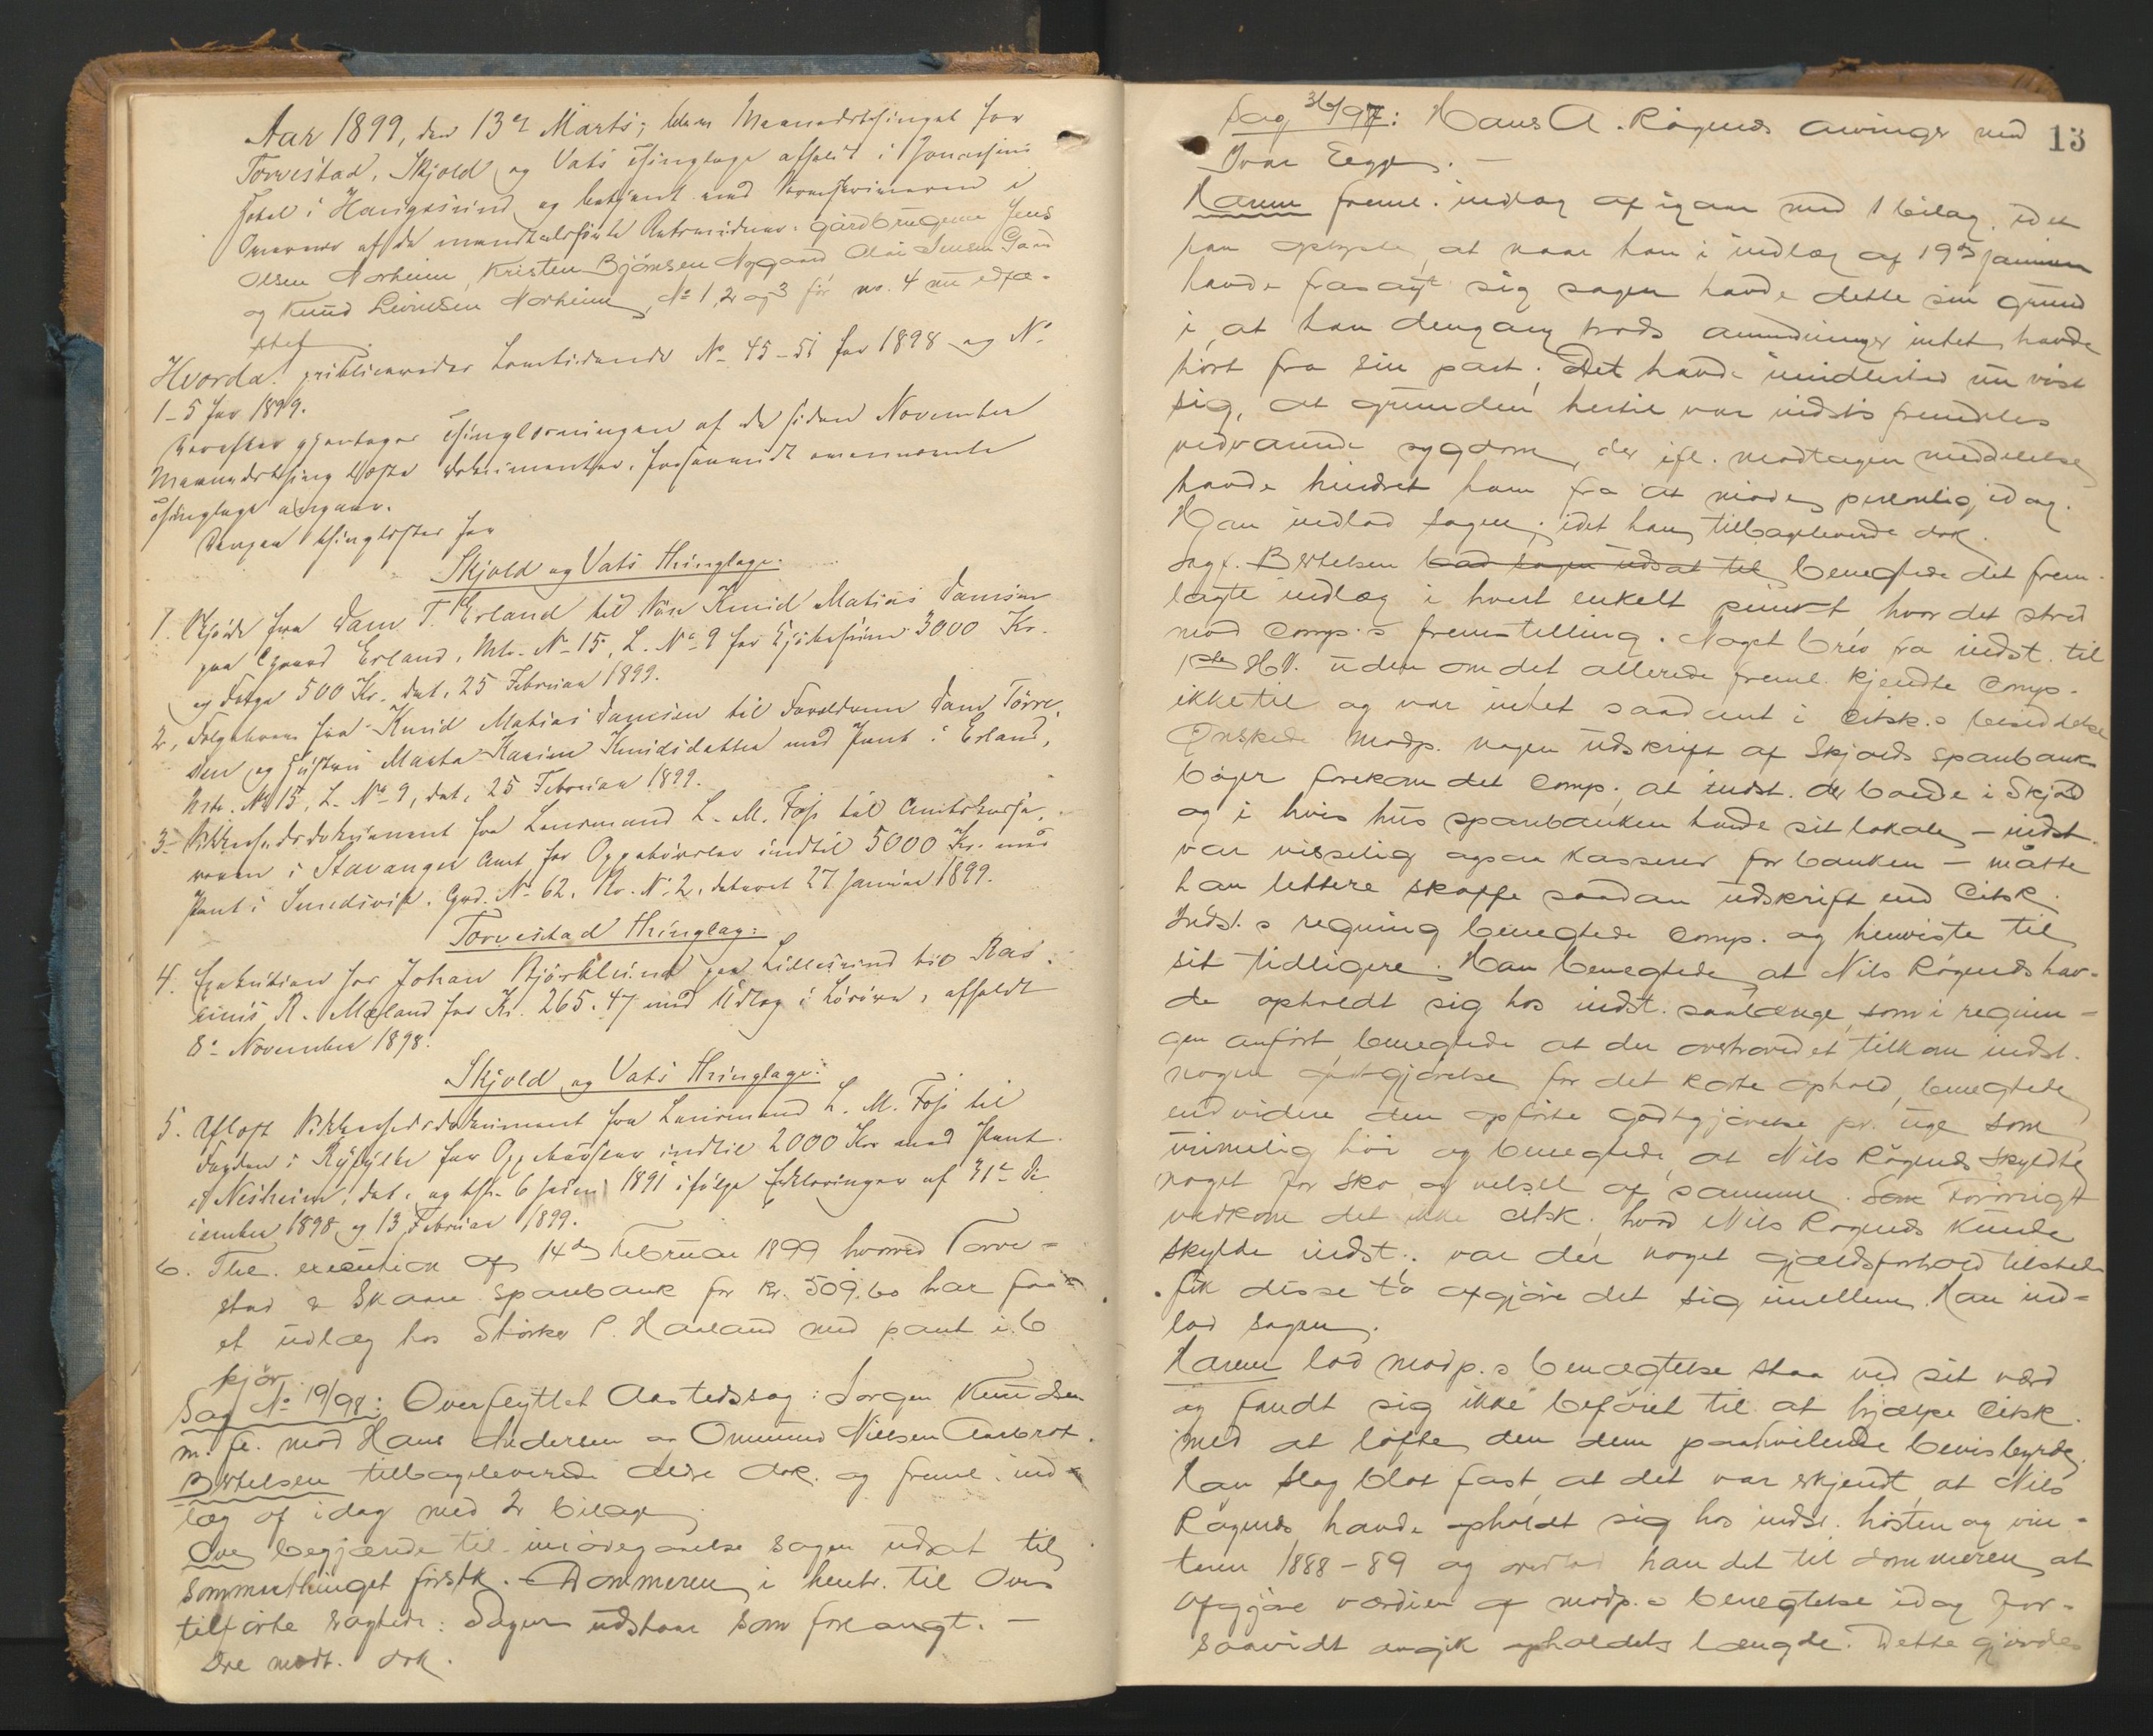 Aar 1899, den 13de Marts; blev Maanedsthinget for
Torvestad, Skjold og Vats Thinglage afholdt i Jonassens
Hotel i Haugesund og betjent med Sorenskriveren i
Overvær af de mandtalsførte Retsvidner: gårdbrugerne Jens
Olsen Norheim, Kristen Bjørnsen Nygaard Olai Jensen Gaard
og Knud Leivelsen Norheim, No 1, 2 og 3 før no. 4 nu edfæ-
stet.
Hvorda! publiceredes Lovtidende No 45-51 for 1898 og No
1-5 for 1899.
Derefter foretages Thinglæsningen af de siden November
Maanedsthing læste Dokumenter, forsaavidt ovennævnte
Thinglage angaar.
Derpaa thinglæstes for
Skjold og Vats Thinglage:
1. Skjøde fra Dam T. Erland til Søn Knud Matias Damsen
paa Gaard Erland, Mtr. No 15, L. No 9 for Kjøbesum 3000 Kr.
og Folge 500 Kr. dat. 25 Februar 1899.
2, Folgebrev fra Knud Matias Damsen til Forældrene Dam Torre
sen og Hustru Marta Karine Knudsdatter med Pant i Erland,
Mtr. No 15, L. No 9, dat. 25 Februar 1899.
3. Sikkerhedsdokument fra Lensmand L. M. Foss til Amtskasse-
reren i Stavanger Amt for Oppebørsler indtil 5000 Kr. med
Pant i Sundsvik. Grd. No 62. Br. No 2. dateret 27 Januar 1899.
Torvestad Thinglag:
4. Exekution for Johan Bjørklund paa Lillesund hos Ras-
mus R. Mæland for Kr. 265.47 med Udlæg i Løsøre, afholdt
8de November 1898.
Skjold og Vats Thinglage:
5. Aflyst Sikkerhedsdokument fra Lensmand L. M. Foss til
Fogden i Ryfylke for Oppebørsler indtil 2000 Kr med Pant
i Nesheim, dat. og thl. 6 Juni 1891 ifølge Erklæringer af 31te De-
cember 1898 og 13 Februar 1899.
6. Thl. execution af 14de Februar 1899 hvorved Torve-
stad & Skaare Sparebank for Kr. 509.60 har faa-
et udlæg hos Størker P. Haaland med pant i 6
kjør.
Sag No 19/98: Overflyttet Aastedssag: Jorgen Knudsen
m. fl. mod Hans Andersen og Ommund Nilsen Aasbrot.
Bertelsen tilbageleverede ældre dok. og freml. ind-
læg af idag med 2 bilage.
Ove begjærede til imødegaaelse sagen udsat til
sommerthinget førstk. Dommeren i henh. til Oves
tilførte vragtede: Sagen udstaar som forlangt. —
Ove modt. dok.

13
Sag 36/97: Hans A. Røgenes avinger mod
Ivar Egge. —
Karem freml. indlæg af igaar med 1 bilag, idet
han oplyste, at naar han i indlæg af 19de januar
havde frasagt sig sagen havde dette sin grund
i, at han dengang trods anmodninger intet havde
hørt fra sin part; Det havde imidlertid nu vist
sig, at grunden hertil var indst's fremdeles
vedvarende sygdom, der ifl. modtagen meddelelse
havde hindret ham fra at møde personlig idag.
Han indlod sagen, idet han tilbageleverede dok.
Sagf. Bertelsen bad sagen udsat til benegtede det frem-
lagte indlæg i hvert enkelt punkt, hvor det stred
mod comp.s fremstilling. Noget brev fra indst. til
HV. uden om det allerede freml. kjendte comp.
ikke til og var intet saadant i citsk.s besiddelse
Ønskede modp. nogen udskrift af Skjolds sparebanks
bøger forekom det comp., at indst. der boede i Skjold
og i hvis hus sparebanken havde sit lokale, — indst.
var visselig ogsaa kasserer for banken — måtte
han lettere skaffe saadan udskrift end Citsk.
Indst.s regning benegtede comp. og henviste til
sit tidligere. Han benegtede, at Nils Røgenes hav-
de opholdt sig hos indst. saalænge, som i regnin-
gen anført, benegtede at der overhovedet tilkom indst.
nogen godtgjørelse for det korte ophold, benegtede
endvidere den opførte godtgjørelse pr. uge som
urimelig høi og benegtede, at Nils Røgenes skyldte
noget for sko og velsel af samme. Som Forøvrigt
vedkom det ikke citsk., hvad Nils Røgenes kunde
skylde indst.; var der noget gjældsforhold tilstede
fik disse to afgjøre det sig imellem. Han ind-
lod sagen.
Karem lod modp.s benægtelse staa ved sit værd
og fandt sig ikke beføiet til at hjælpe Citsk.
med at løfte den dem paahvilende bevisbyrde.
Han slog blot fast, at det var erkjendt, at Nils
Røgenes havde opholdt sig hos indst. høsten og vin-
teren 1888-89 og overlod han det til dommeren at
afgjøre værdien af modp.s benegtelse idag for-
saavidt angik opholdets længde. Dette gjordes